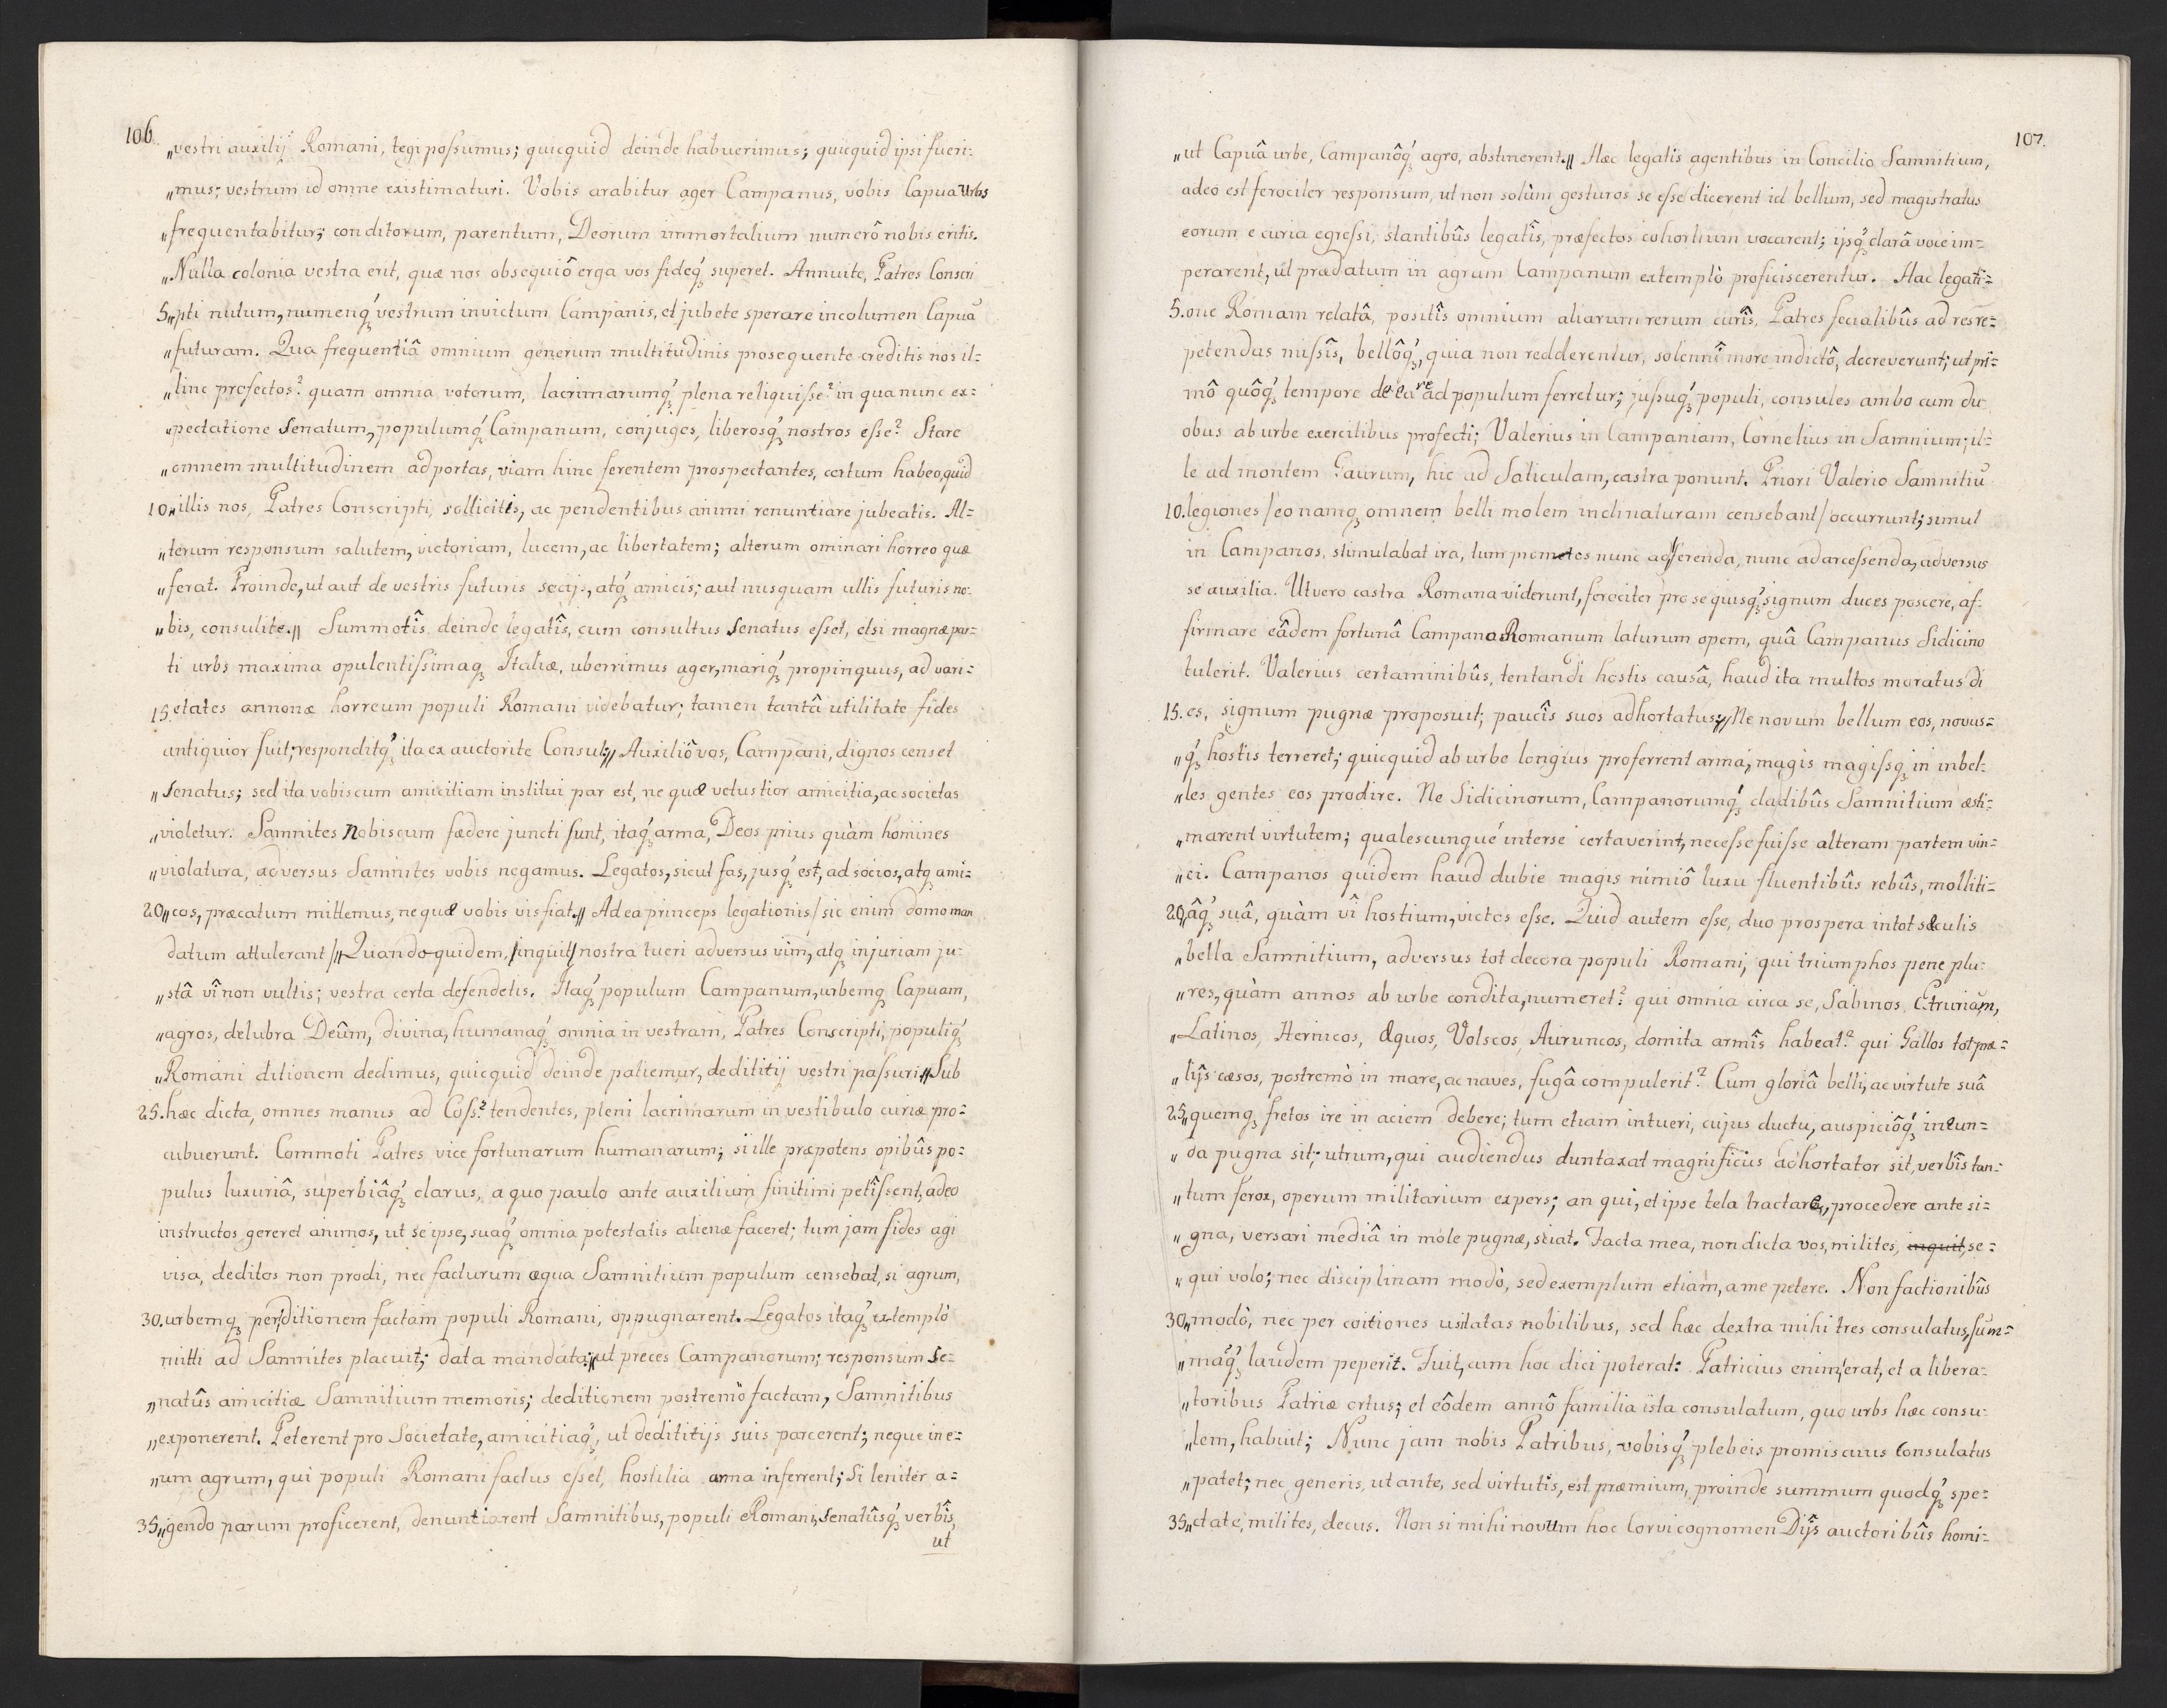 106.
„vestri auxilij Romani, tegi possumus; quicquid deinde habuerimus; quicquid ipsi fueri-
„mus; vestrum id omne existimaturi. Vobis arabitur ager Campanus, vobis Capua Urbs
„frequentabitur; conditorum, parentum, Deorum immortalium numerô nobis eritis.
„Nulla colonia vestra erit, quæ nos obsequiô erga vos fideq́ꝫ superet. Annuite, Patres Conscri
5„pti nutum, numenq́ꝫ vestrum invictum Campanis, et jubete sperare incolumen Capuã
„futuram. Qua frequentiâ omnium generum multitudinis prosequente creditis nos il-
„linc profectos? quam omnia votorum, lacrimarumq́ꝫ plena reliquisse? in qua nunc ex-
„pectatione Senatum, populumq́ꝫ Campanum, conjuges, liberosq́ꝫ nostros esse? Stare
„omnem multitudinem ad portas, viam hinc ferentem prospectantes, certum habeo, quid
10„illis nos, Patres Conscripti, sollicitis, ac pendentibus animi renuntiare jubeatis. Al-
„terum responsum salutem, victoriam, lucem, ac libertatem; alterum ominari horreo quæ
„ferat. Proinde, ut aut de vestris futuris socijs, atq́ꝫ amicis; aut nusquam ullis futuris no-
„bis, consulite.〃 Summotîs deinde legatîs, cum consultus Senatus esset, etsi magnæ par-
ti urbs maxima opulentissimaqꝫ Italiæ, uberrimus ager, mariq́ꝫ propinquus, ad vari-
15.etates annonæ horreum populi Romani videbatur; tamen tantâ utilitate fides
antiquior fuit; responditq́ꝫ ita ex auctorite Consul;〃 Auxiliô vos, Campani, dignos censet
„Senatus; sed ita vobiscum amicitiam institui par est, ne quæ vetustior amicitia, ac societas
„violetur. Samnites nobiscum fædere juncti sunt, itaq́ꝫ arma, Deos prius quàm homines
„violatura, adversus Samnites vobis negamus. Legatos, sicut fas, jusq́ꝫ est, ad socios, atqꝫ ami-
20„cos, præcatum mittemus, ne quæ vobis vis fiat.〃 Ad ea princeps legationis/ sic enim domo man
datum attulerant/〃Quandoquidem,/inquit/ nostra tueri adversus vim, atqꝫ injuriam ju-
„stâ vî non vultis; vestra certa defendetis. Itaq́ꝫ populum Campanum, urbemqꝫ Capuam,
„agros, delubra Deûm, divina, humanaq́ꝫ omnia in vestram, Patres Conscripti, populiq́ꝫ
„Romani ditionem dedimus, quicquid deinde patiemur, dedititij vestri passuri.〃Sub
25.hæc dicta, omnes manus ad Coss.? tendentes, pleni lacrimarum in vestibulo curiæ pro-
cubuerunt. Commoti Patres vice fortunarum humanarum; si ille præpotens opibûs po-
pulus luxuriâ, superbiâq́ꝫ clarus, a quo paulo ante auxilium finitimi petîssent, adeo
instructos gereret animos, ut se ipse, suaq́ꝫ omnia potestatis alienæ faceret; tum jam fides agi
visa, deditos non prodi, nec facturum æqua Samnitium populum censebat, si agrum,
30.urbemqꝫ per ditionem factam populi Romani, oppugnarent. Legatos itaq́ꝫ extemplò
mitti ad Samnites placuit; data mandata;〃ut preces Campanorum; responsum Se-
„natûs amicitiæ Samnitium memoris; deditionem postremò factam, Samnitibus
„exponerent. Peterent pro Societate, amicitiaq́ꝫ, ut dedititijs suis parcerent; neque in e-
„um agrum, qui populi Romani factus esset, hostilia arma inferrent; Si leniter a-
35„gendo parum proficerent, denuntiarent Samnitibus, populi Romani, Senatûsq́ꝫ verbîs,
ut
107.
„ut Capuâ urbe, Campanôq́ꝫ agro, abstinerent.〃 Hæc legatis agentibus in Concilio Samnitium,
adeo est ferociter responsum, ut non solùm gesturos se esse dicerent id bellum, sed magistratus
eorum e curia egressi, stantibûs legatîs, præfectos cohortium vocarent; ijsq́ꝫ clarâ voce im-
perarent, ut prædatum in agrum Campanum extemplò proficiscerentur. Hac legati-
5.one Romam relatâ, positîs omnium aliarum rerum curîs, Patres fecialibûs ad res re-
petendas missîs, bellôq́ꝫ, quia non redderentur, solennî more indictô, decreverunt; ut pri-
mô quôq́ꝫ tempore de ea re ad populum ferretur; jussuq́ꝫ populi, consules ambo cum du
obus ab urbe exercitibus profecti; Valerius in Campaniam, Cornelius in Samnium; il-
le ad montem Gaurum, hic ad Saticulam, castra ponunt. Priori Valerio Samnitiũ
10.legiones/ eo namqꝫ omnem belli molem inclinaturam censebant/ occurrunt; simul
in Campanos, stimulabat ira, tum promptos nunc ad ferenda, nunc ad arcessenda, adversus
se auxilia. Ut vero castra Romana viderunt, ferociter pro se quisq́ꝫ signum duces poscere, af-
firmare eâdem fortunâ Campano Romanum laturum opem, quâ Campanus Sidicino
tulerit. Valerius certaminibûs, tentandi hostis causâ, haud ita multos moratus di
15.es, signum pugnæ proposuit; paucîs suos adhortatus;〃Ne novum bellum eos, novus-
„q́ꝫ hostis terreret; quicquid ab urbe longius proferrent arma, magis magissqꝫ in inbel-
„les gentes eos prodire. Ne Sidicinorum, Campanorumq́ꝫ cladibûs Samnitium æsti-
„marent virtutem; qualescunque inter se certaverint, necesse fuisse alteram partem vin-
„ci. Campanos quidem haud dubie magis nimiô luxu fluentibûs rebûs, molliti-
20„âq́ꝫ suâ, quàm vî hostium, victos esse. Quid autem esse, duo prospera in tot sæculis
„bella Samnitium, adversus tot decora populi Romani, qui triumphos pene plu-
„res, quàm annos ab urbe condita, numeret? qui omnia circa se, Sabinos, Etruriam,
„Latinos, Hernicos, Æquos, Volscos, Auruncos, domita armîs habeat? qui Gallos tot præ-
„lijs cæsos, postremò in mare, ac naves, fugâ compulerit? Cum gloriâ belli, ac virtute suâ
25„quemqꝫ fretos ire in aciem debere; tum etiam intueri, cujus ductu, auspiciôq́ꝫ ineun-
„da pugna sit; utrum, qui audiendus duntaxat magnificus adhortator sit, verbîs tan-
„tum ferox, operum militarium expers; an qui, et ipse tela tractare, procedere ante si-
„gna, versari mediâ in mole pugnæ, sciat. Facta mea, non dicta vos, milites, inquit, se-
„qui volo; nec disciplinam modò, sed exemplum etiam, a me petere. Non factionibûs
30„modò, nec per coitiones usitatas nobilibus, sed hæc dextra mihi tres consulatus, sum-
„maq́ꝫ laudem peperit. Fuit, cum hoc dici poterat: Patricius enim, erat, et a libera-
„toribus Patriæ ortus; et eôdem annô familia ista consulatum, quo urbs hæc consu-
„lem, habuit; Nunc jam nobis Patribus, vobisq́ꝫ plebeis promiscuus Consulatus
„patet; nec generis, ut ante, sed virtutis, est præmium, proinde summum quodq́ꝫ spe-
35„ctate, milites, decus. Non si mihi novum hoc Corvi cognomen Dijs auctoribûs homi-